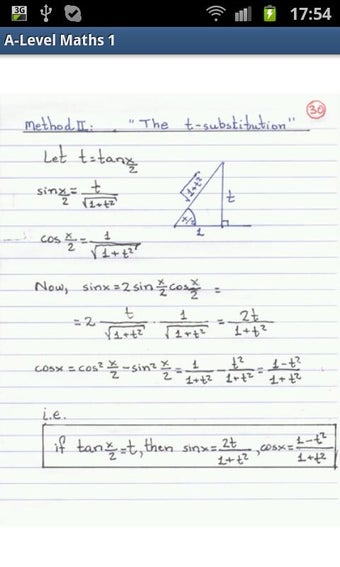 3G 17:54
A-Level Maths 1
30
Method II: "The t-substitution"
Let t=tan x/2
sin x/2 = t/√(1+t²)
√(1+t²) t
x/2 1
cos x/2 = 1/√(1+t²)
Now, sinx = 2 sin x/2 cos x/2 =
= 2 t/√(1+t²) · 1/√(1+t²) = 2t/(1+t²)
cosx = cos² x/2 - sin² x/2 = 1/(1+t²) - t²/(1+t²) = (1-t²)/(1+t²)
i.e.
if tan x/2 = t, then sinx = 2t/(1+t²), cosx = (1-t²)/(1+t²)